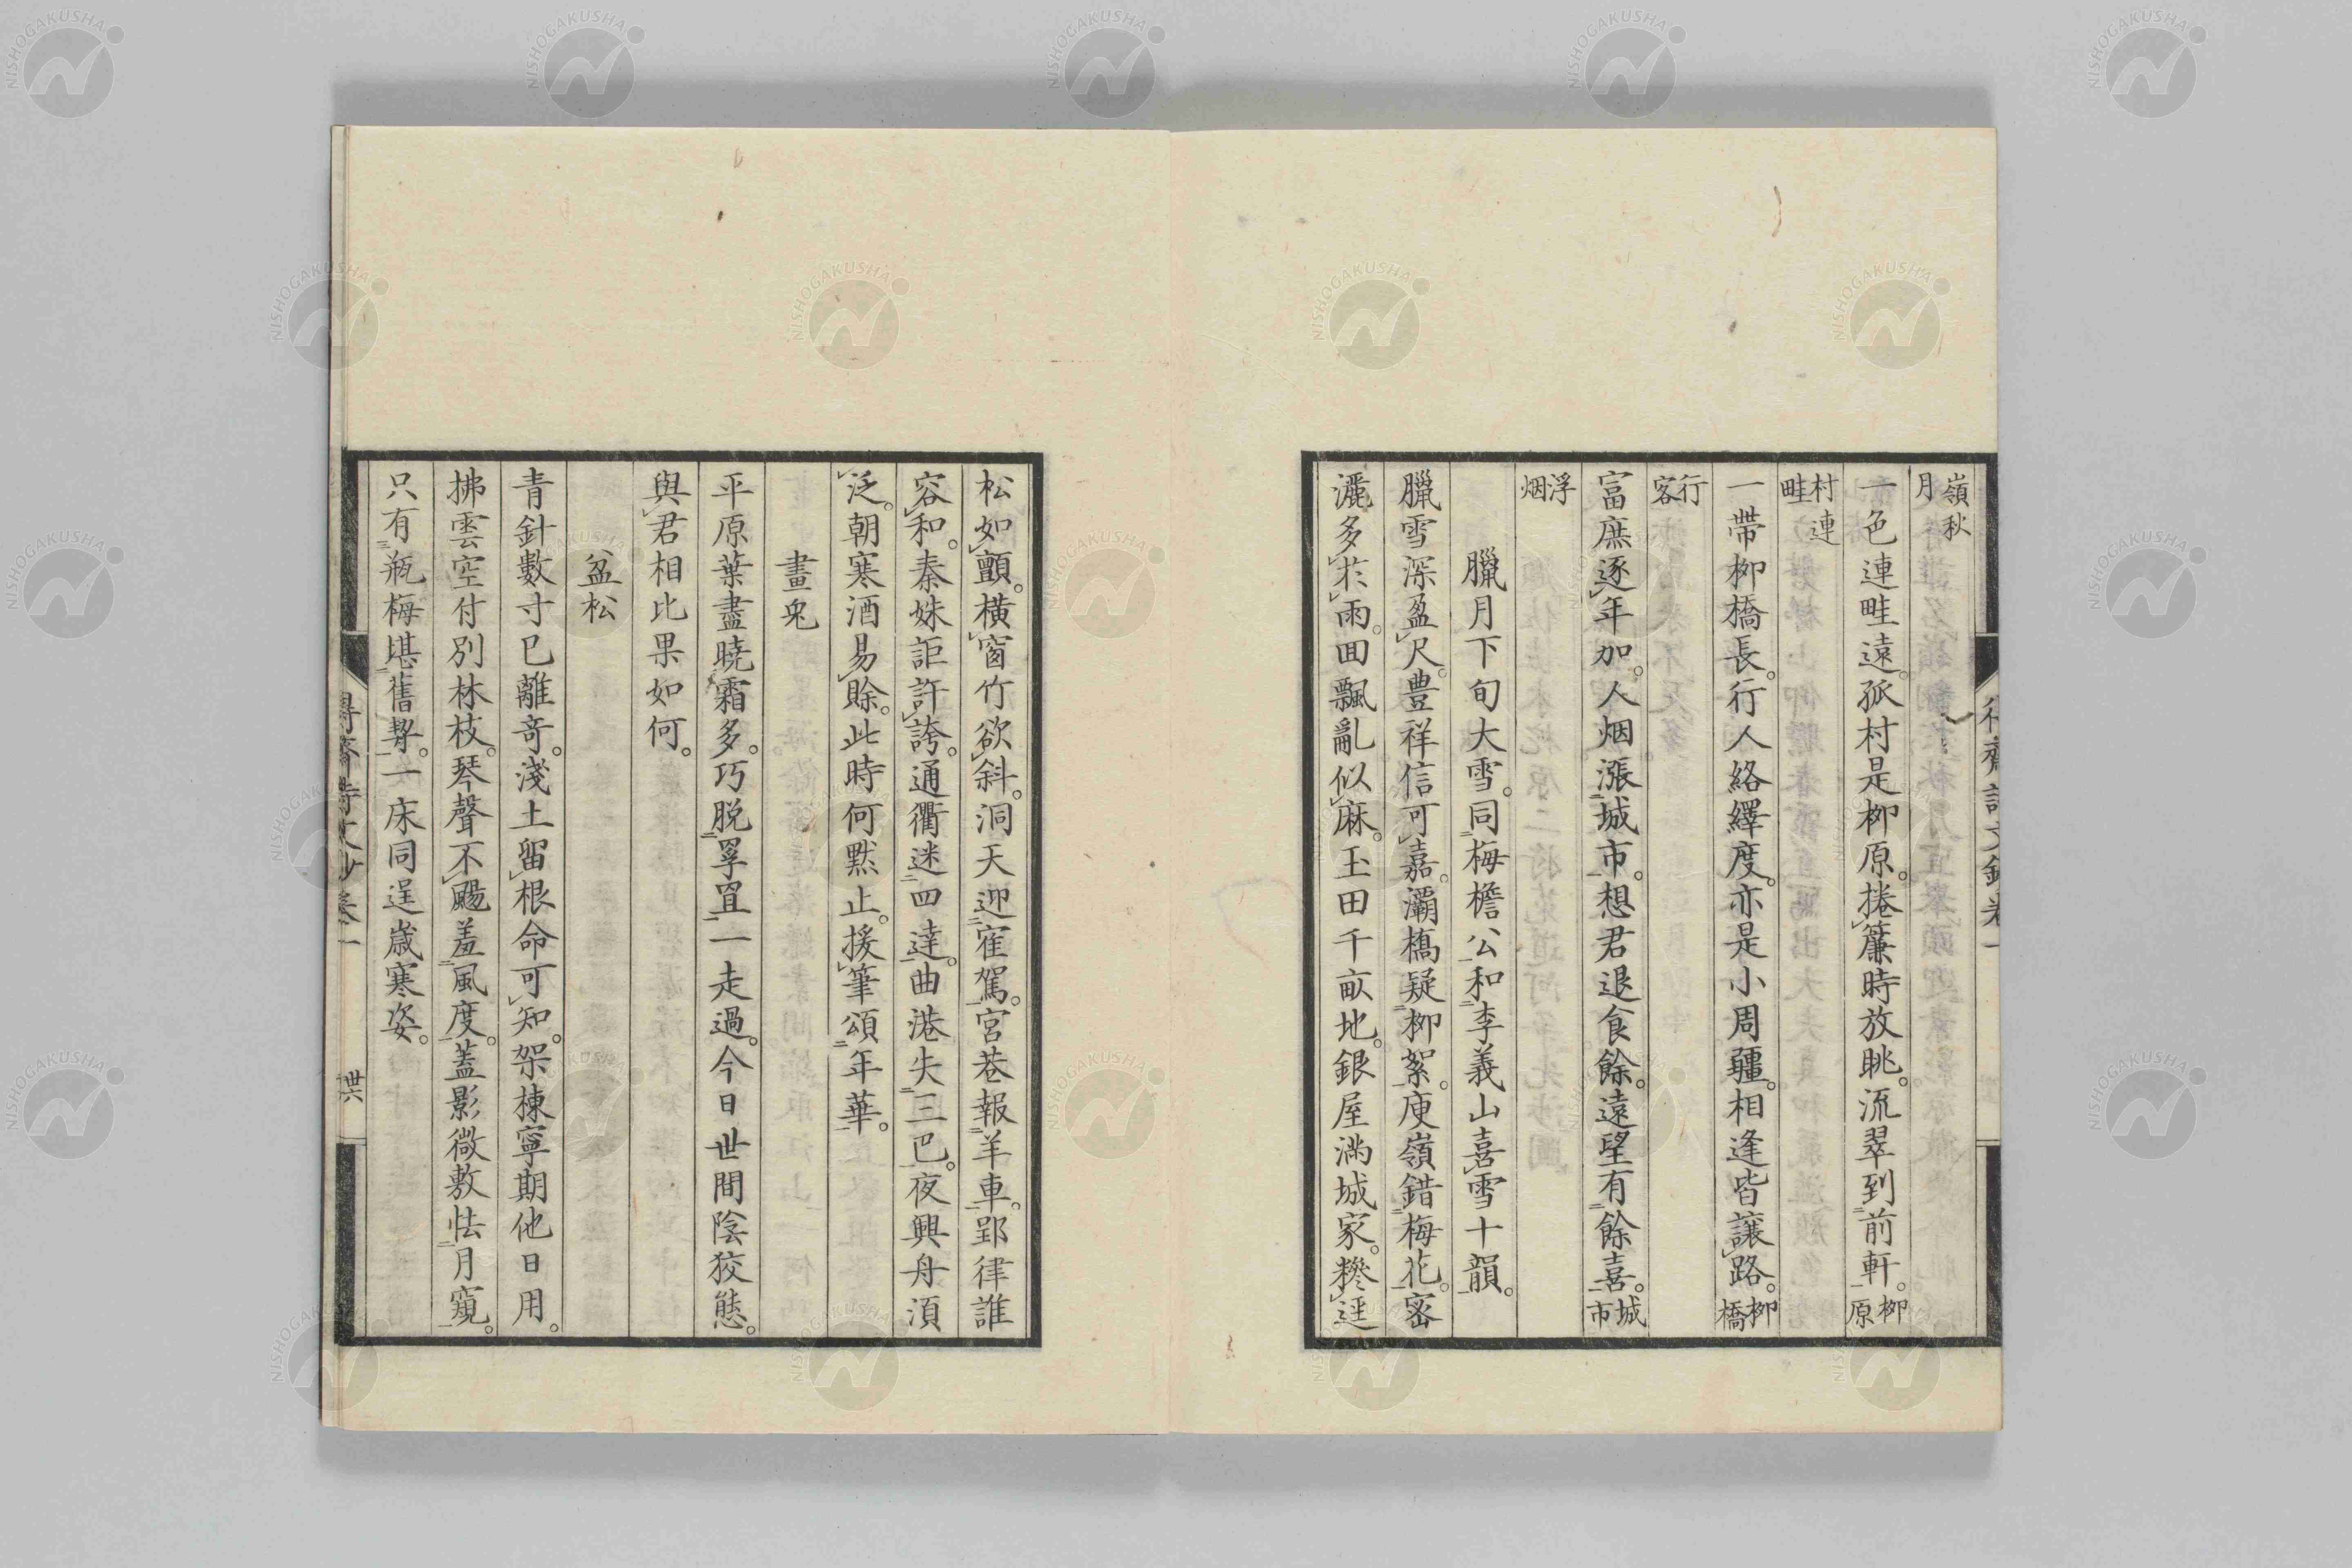 嶺秋
月
一色連畦遠。孤村是柳原。捲簾時放眺。流翠到前軒。柳原
村連
畦
一帶柳橋長。行人絡繹度。亦是小周疆。相逢皆讓路。柳橋
行
客
富庶逐年加。人烟漲城市。想君退食餘。遠望有餘喜。城市
浮
烟
臘月下旬大雪。同梅檐公和李義山喜雪十韻。
臘雪深盈尺。豊祥信可嘉。灞橋疑柳絮。庾嶺錯梅花。密
灑多於雨。回飄亂似麻。玉田千畝地。銀屋滿城家。糝逕
松如顫。橫窗竹欲斜。洞天迎崔駕。宮巷報羊車。郢律誰
容和。秦姝詎許誇。通衢迷四達。曲港失三巴。夜興舟須
泛。朝寒酒易賖。此時何默止。援筆頌年華。
畫兎
平原葉盡曉霜多。巧脱罦罝一走過。今日世間陰狡態。
與君相比果如何。
盆松
青針數寸已離奇。淺土留根命可知。架棟寧期他日用。
拂雲空付別林枝。琴聲不颺羞風度。蓋影微敷怯月窺。
只有瓶梅堪舊契。一床同逞歳寒姿。
卷一
丗六
NISHOGAKUSHA